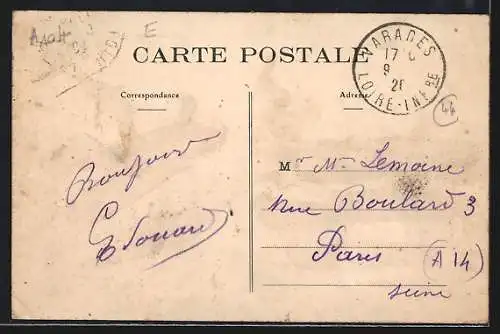 E
CARTE POSTALE
VARADES
17
9
20
LOIRE-INFRE
44
Correspondance
Adresse
Bonjour
Edouard
Mr Me Lemoine
Rue Boulard 3
Paris
A 14
Seine